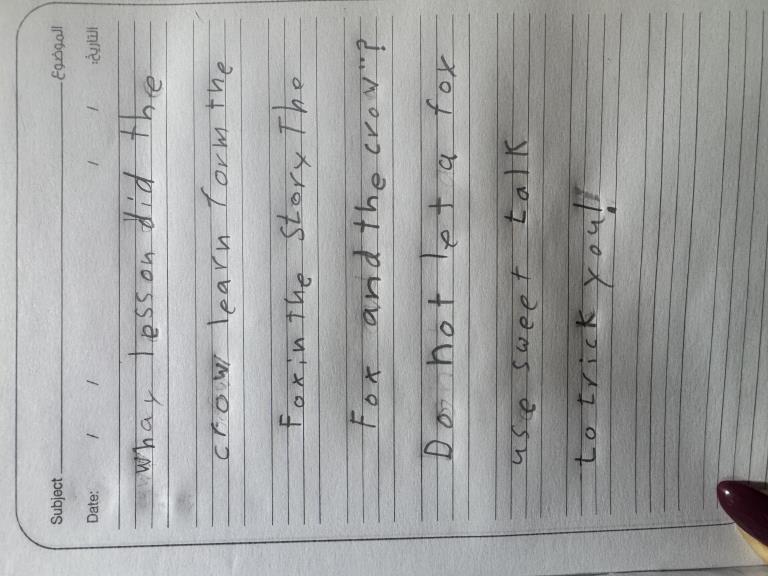 Subject الموضوع
Date: / / / / التاريخ:
whay lesson did the
crow learn form the
Fox in the story The
Fox and the crow"?
Do not let a fox
use sweet talk
to trick you!